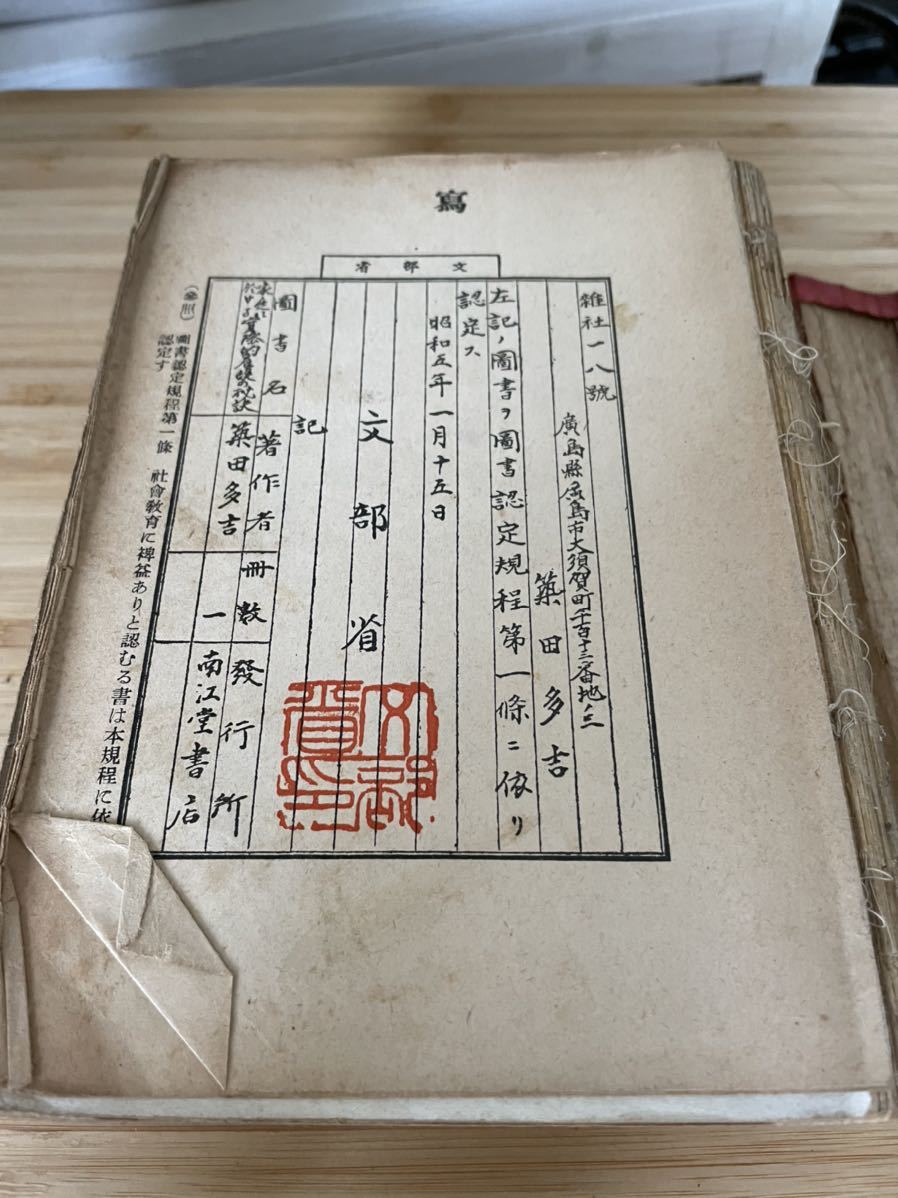 寫
文部省
雜社一八號
廣島縣廣島市大須賀町
築田多吉
左記ノ圖書ヲ圖書認定規程第一條ニ依リ
認定ス
昭和五年一月十五日
文部省
文部省印
記
圖書名
家庭に於ける實際的看護の秘訣
著作者
築田多吉
冊數
一
發行所
南江堂書店
(參照)
圖書認定規程第一條 社會教育に裨益ありと認むる書は本規程に依
認定す